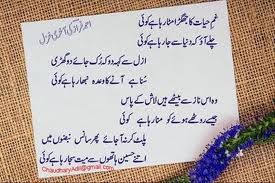 احمد فراز کی آخری غزل
غمِ حیات کا جھگڑا منا رہا ہے کوئی
چلے آؤ کہ دنیا سے جا رہا ہے کوئی
ازل سے کہہ دو کہ رک جائے دو گھڑی
سنا ہے آنے کا وعدہ نبھا رہا ہے کوئی
وہ اس ناز سے بیٹھے ہیں لاش کے پاس
جیسے روٹھے ہوئے کو منا رہا ہے کوئی
پلٹ کر نہ آ جائے پھر سانس نبضوں میں
اتنے حسین ہاتھوں سے میت سجا رہا ہے کوئی
ChaudharyAdil@gmail.com